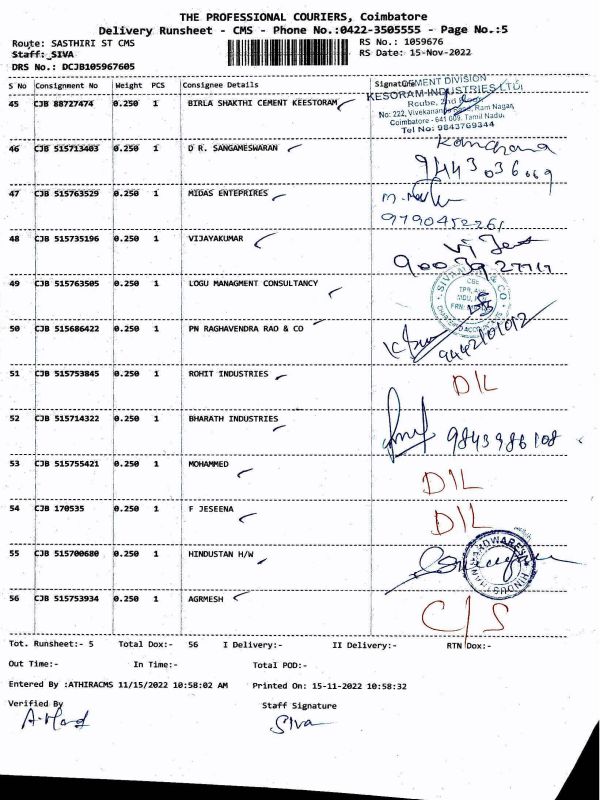 THE PROFESSIONAL COURIERS, Coimbatore
Delivery Runsheet - CMS - Phone No.:0422-3505555 - Page No.:5
Route: SASTHIRI ST CMS RS No.: 1059676
Staff:_SIVA RS Date: 15-Nov-2022
DRS No.: DCJB105967605
S No Consignment No Weight PCS Consignee Details Signature
CEMENT DIVISION
KESORAM INDUSTRIES LTD
45 CJB 88727474 0.250 1 BIRLA SHAKTHI CEMENT KEESTORAM
No: 222, Vivekananda Road, Ram Nagar,
Coimbatore - 641 009. Tamil Nadu.
Tel No: 9843769344
46 CJB 515713403 0.250 1 D R. SANGAMESWARAN
9443036009
47 CJB 515763529 0.250 1 MIDAS ENTEPRIRES
9790452261
48 CJB 515735196 0.250 1 VIJAYAKUMAR
49 CJB 515763505 0.250 1 LOGU MANAGMENT CONSULTANCY
50 CJB 515686422 0.250 1 PN RAGHAVENDRA RAO & CO
9442101012
51 CJB 515753845 0.250 1 ROHIT INDUSTRIES D/L
52 CJB 515714322 0.250 1 BHARATH INDUSTRIES
9843986108
53 CJB 515755421 0.250 1 MOHAMMED D/L
54 CJB 170535 0.250 1 F JESEENA D/L
55 CJB 515700680 0.250 1 HINDUSTAN H/W
HINDUSTAN HARDWARES
56 CJB 515753934 0.250 1 AGRMESH C/S
Tot. Runsheet:- 5 Total Dox:- 56 I Delivery:- II Delivery:- RTN Dox:-
Out Time:- In Time:- Total POD:-
Entered By :ATHIRACMS 11/15/2022 10:58:02 AM Printed On: 15-11-2022 10:58:32
Verified By Staff Signature
Siva